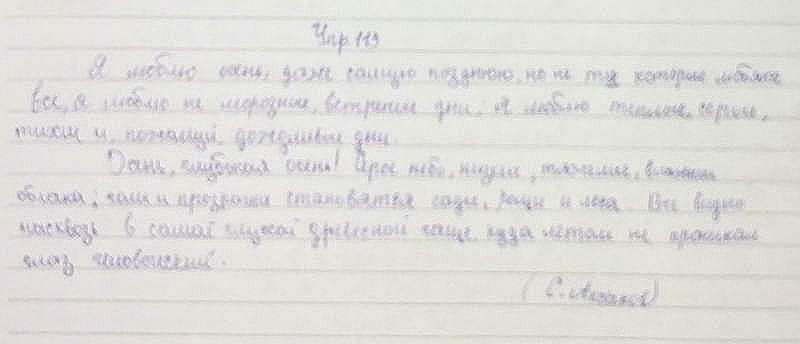 Упр 119
Я люблю осень, даже самую позднюю, но не ту которые любят
все, я люблю не морозные, ветреные дни; я люблю теплые, серые,
тихие и, пожалуй, дождливые дни.
Осень, глубокая осень! Серое небо, низкие, тяжелые, влажные
облака; голы и прозрачны становятся сады, рощи и леса. Все видно
насквозь в самой глухой древесной чаще куда летом не проникал
глаз человеческий.
(С. Аксаков)